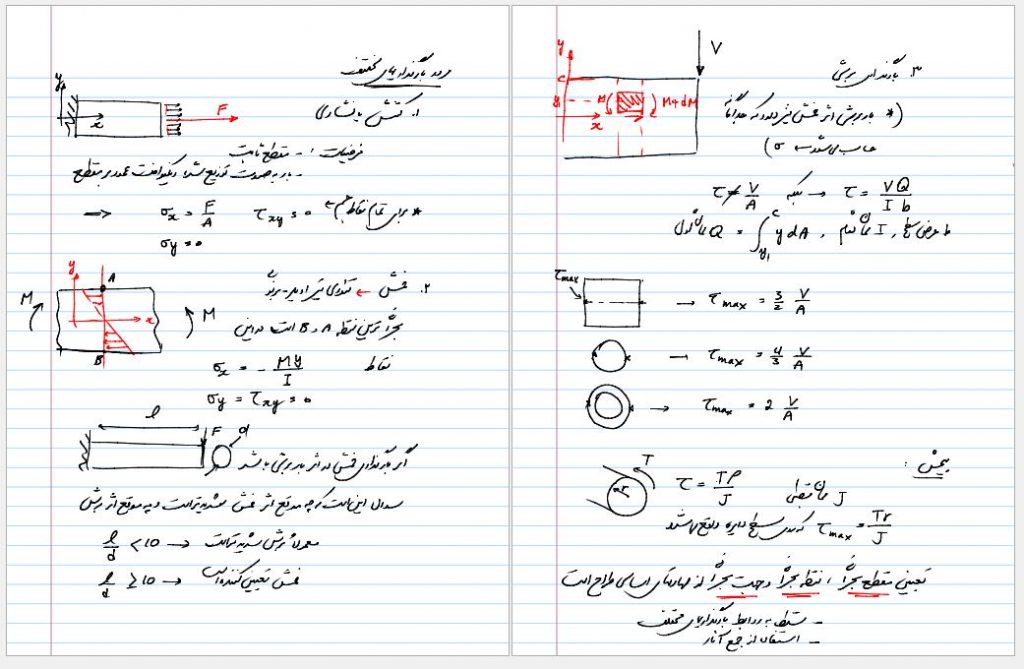 مرور بارگذاریهای مختلف
۱. کشش یا فشاری
y
x
F
فرضیات: - مقطع ثابت
- بار به صورت توزیع شده یکنواخت عمود بر مقطع
⇒ σx = F/A τxy = 0 * برای تمام نقاط جسم
σy = 0
۲. خمش ← تئوری تیر اویلر-برنولی
y
A
M
x
M
B
بحرانی ترین نقطه A و B است در این
نقاط σx = - My/I
σy = τxy = 0
l
F
d
اگر بارگذاری خمش در اثر بار برشی باشد
سوال این است که چه موقع اثر خمش شدیدتر است و چه موقع اثر برش
l/d < 10 → معمولاً برش شدیدتر است
l/d ≥ 10 → خمش تعیین کننده است
۳. بارگذاری برشی
V
y
c
y
M
M+dM
x
(* بار برشی اثر خمش نیز دارد که جداگانه
حساب می شد → σ)
τ ≠ V/A بلکه → τ = VQ/Ib
Q ممان اول = ∫_{y1}^{c} y dA , I ممان دوم , b عرض سطح
τmax
→ τmax = 3/2 V/A
→ τmax = 4/3 V/A
→ τmax = 2 V/A
پیچش:
T
r
τ = Tρ/J
J ممان قطبی
τmax = Tr/J که روی سطح دایره واقع می باشد
تعیین مقطع بحرانی، نقطه بحرانی و جهت بحرانی از مهارتهای اساسی طراح است
- تسلط به روابط بارگذاریهای مختلف
- استفاده از جمع آثار